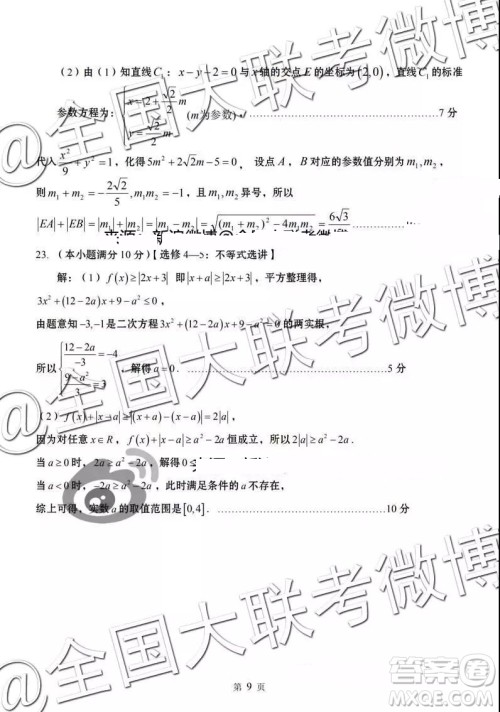 (2)由(1)知直线C₁：x−y−2=0与x轴的交点E的坐标为(2,0)，直线C₁的标准
参数方程为：{x=2+(√2/2)m
y=(√2/2)m (m为参数) 7分
代入x²/9+y²=1，化得5m²+2√2m−5=0，设点A，B对应的参数值分别为m₁,m₂，
则m₁+m₂=−2√2/5,m₁m₂=−1，且m₁,m₂异号，所以
|EA|+|EB|=|m₁|+|m₂|=|m₁−m₂|=√((m₁+m₂)²−4m₁m₂)=6√3/5
23.（本小题满分10分）【选修4—5：不等式选讲】
解：(1) f(x)≥|2x+3| 即|x+a|≥|2x+3|，平方整理得，
3x²+(12−2a)x+9−a²≤0，
由题意知−3,−1是二次方程3x²+(12−2a)x+9−a²=0的两实根，
所以{(12−2a)/−3=−4
(9−a²)/3=3，解得a=0． 5分
(2) f(x)+|x−a|≥|(x+a)−(x−a)|=2|a|，
因为对任意x∈R，f(x)+|x−a|≥a²−2a恒成立，所以2|a|≥a²−2a．
当a≥0时，2a≥a²−2a，解得0≤
当a<0时，−2a≥a²−2a，此时满足条件的a不存在，
综上可得，实数a的取值范围是[0,4]． 10分
第 9 页
@全国大联考微博
@全国大联考微博
答案圈
MXQE.COM